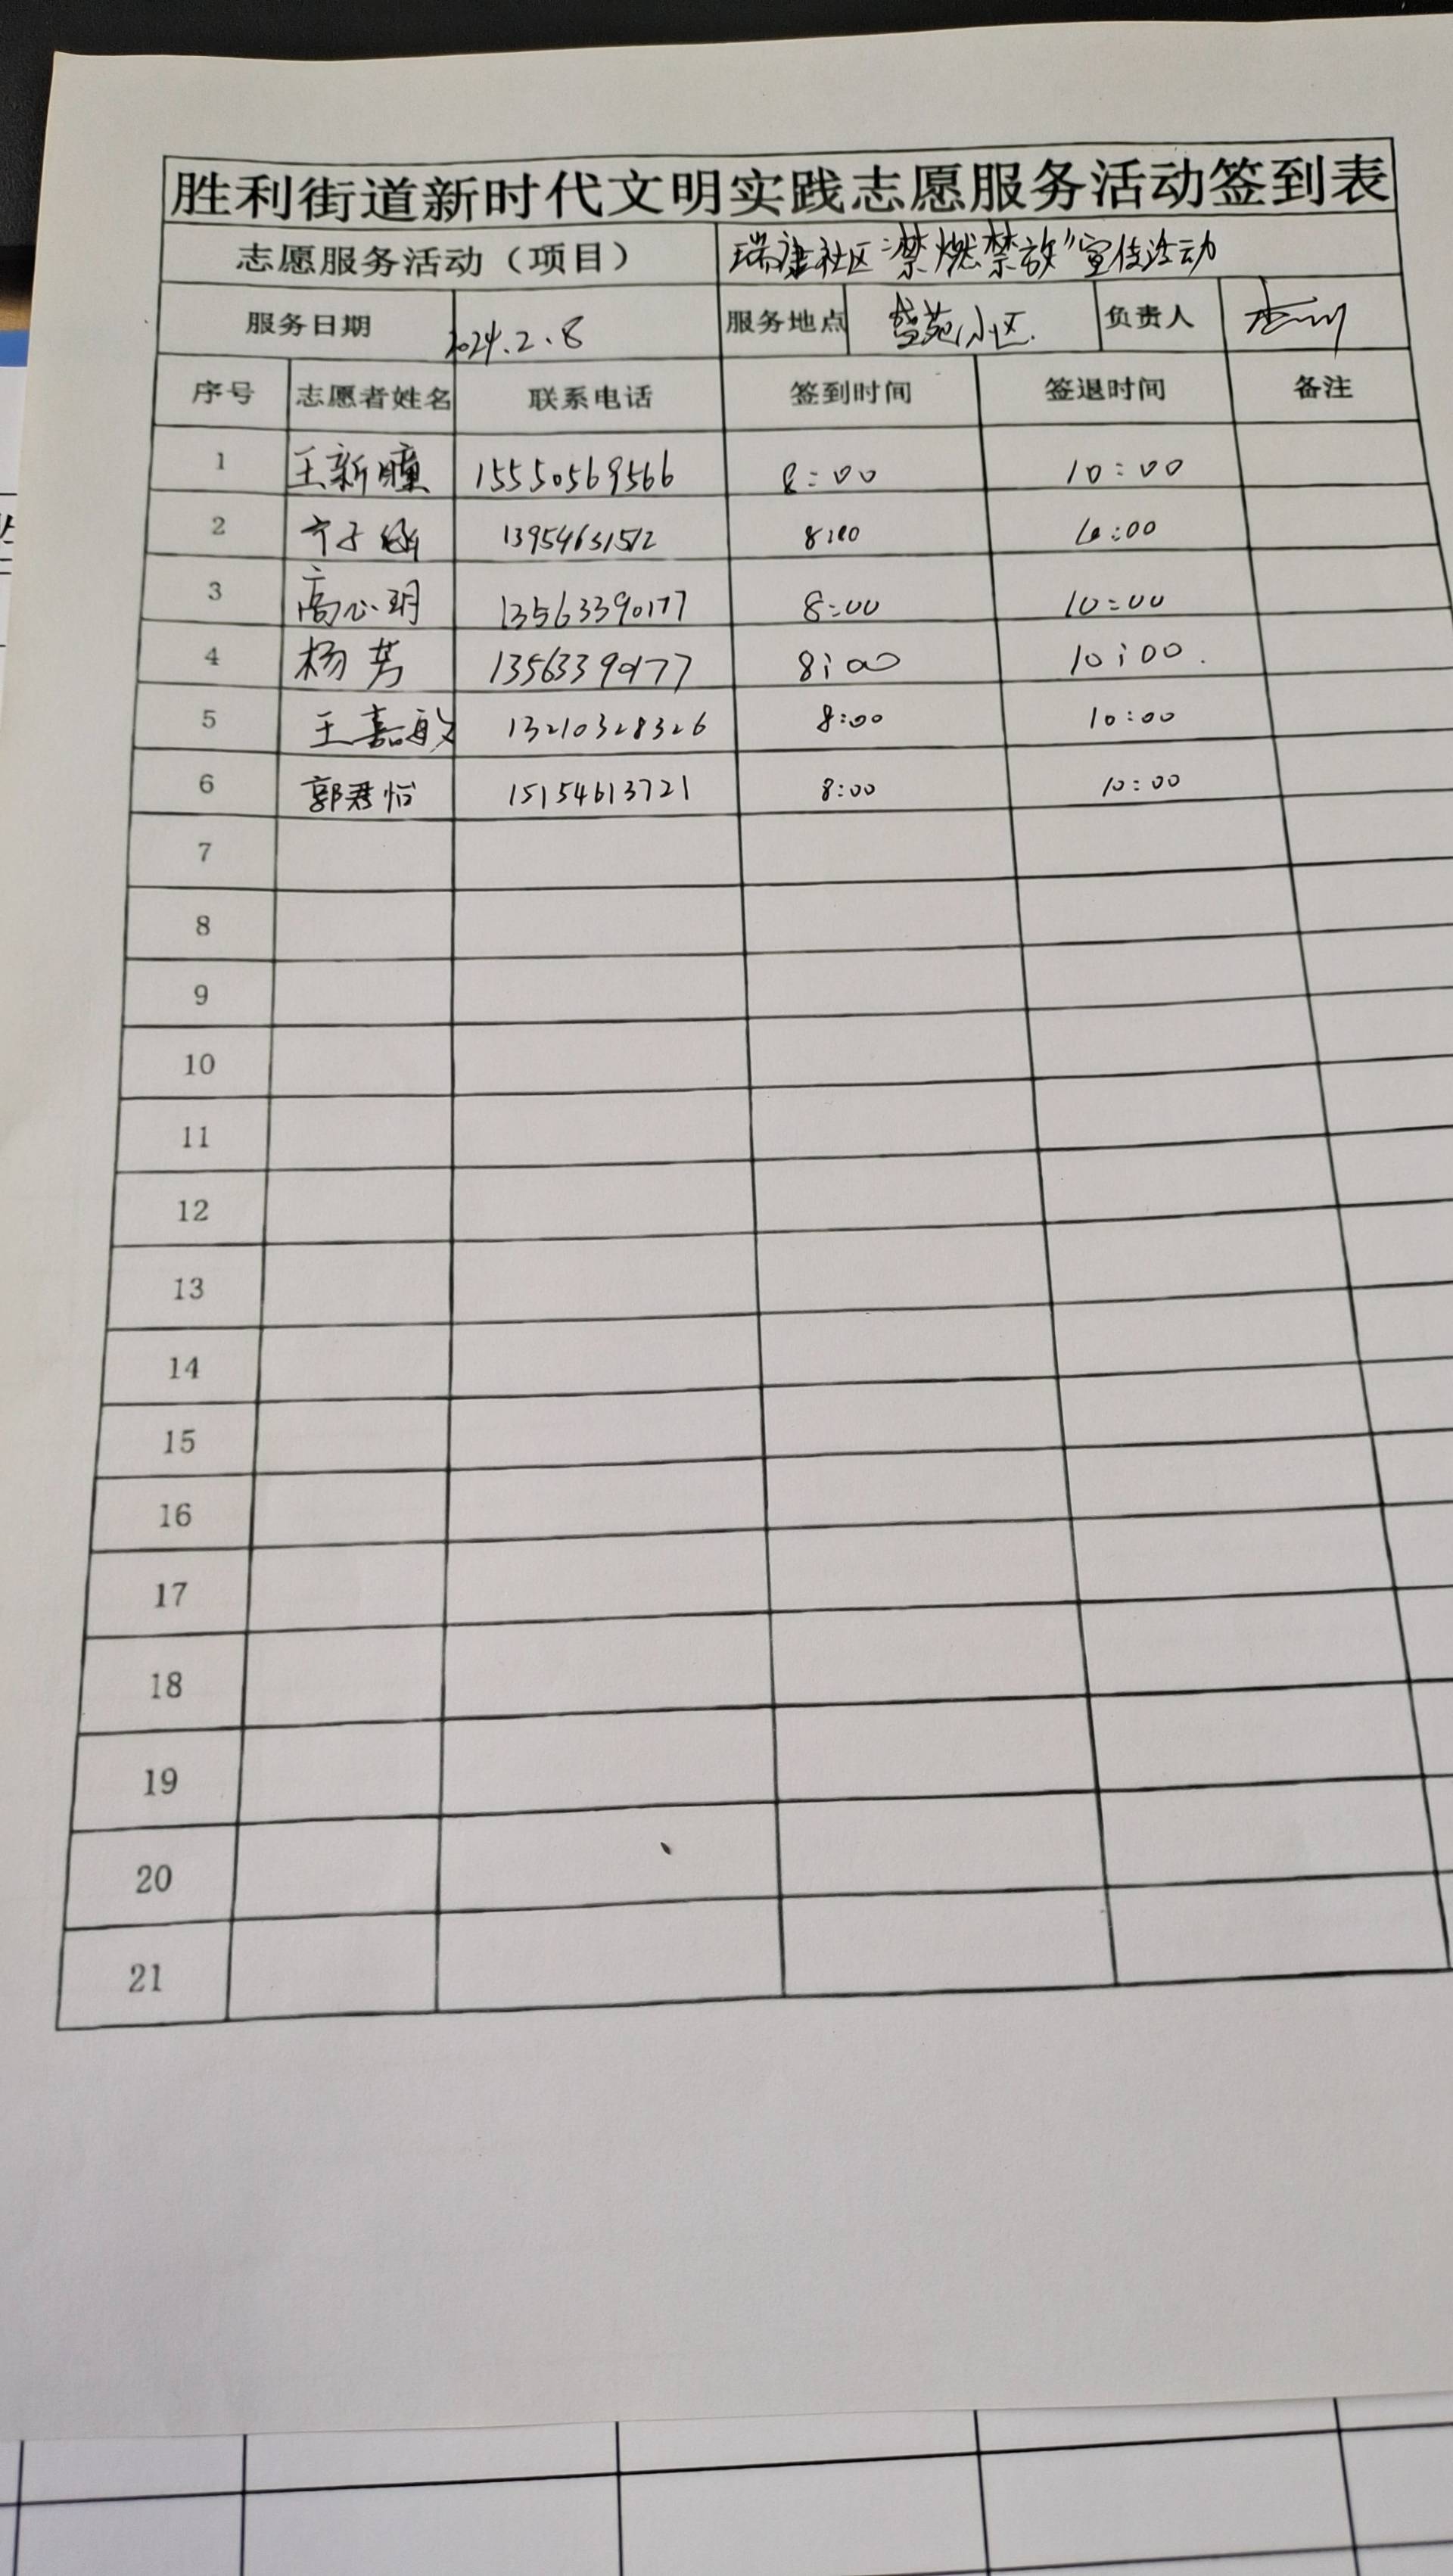 胜利街道新时代文明实践志愿服务活动签到表
志愿服务活动（项目） 瑞康社区“禁燃禁放”宣传活动
服务日期 2024.2.8 服务地点 苑小区. 负责人
序号 志愿者姓名 联系电话 签到时间 签退时间 备注
1 王新瞳 15550569566 8:00 10:00
2 13954631512 8:00 10:00
3 高心玥 13563390177 8:00 10:00
4 杨芳 13563390177 8:00 10:00.
5 王嘉敏 13210328326 8:00 10:00
6 郭君怡 15154613721 8:00 10:00
7
8
9
10
11
12
13
14
15
16
17
18
19
20
21